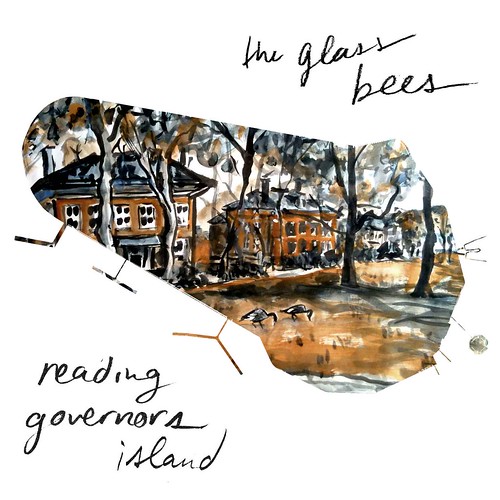 the glass
bees
reading
governors
island